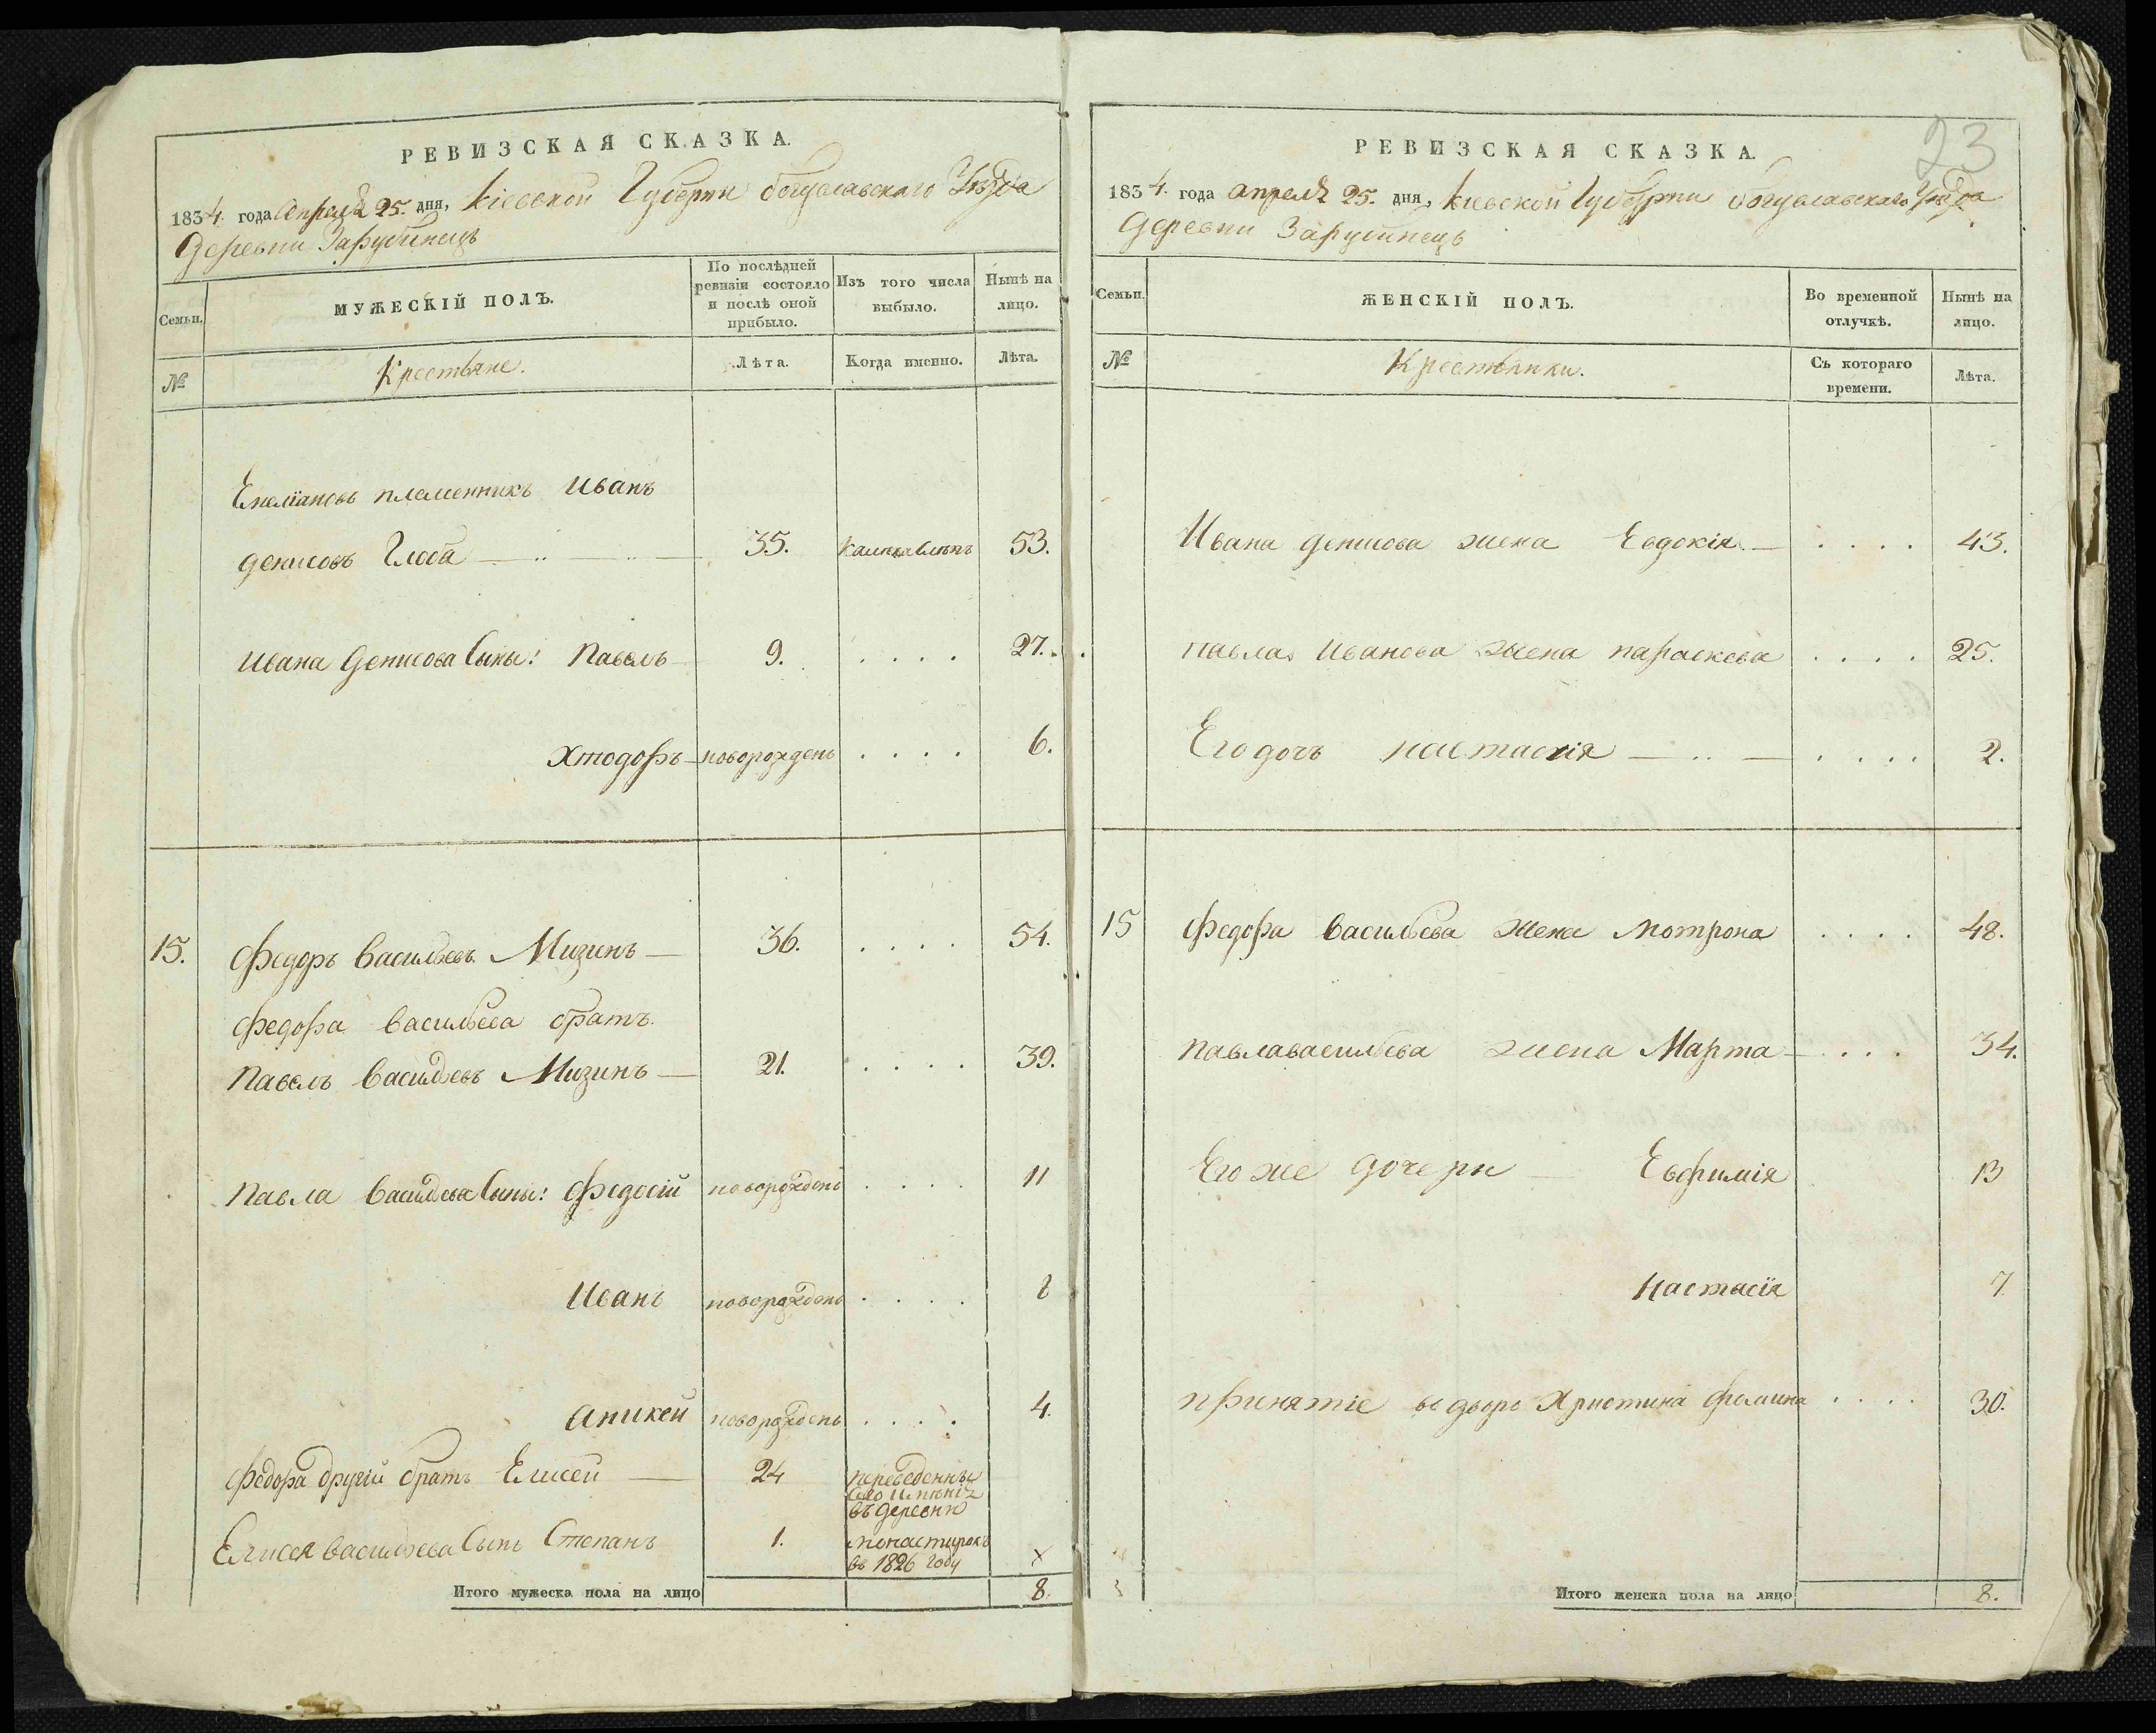 РЕВИЗСКАЯ СКАЗКА.
1834. года Апреля 25. дня, Кіевской Губерніи богуславскаго Уезда
Деревни Зарубинець
Семьи.
МУЖЕСКІЙ ПОЛЪ.
По послѣдней
ревизіи состояло
и послѣ оной
прибыло.
Изъ того числа
выбыло.
Нынѣ на
лицо.
№
Крестьяне.
Лѣта.
Когда именно.
Лѣта.
племенникъ Иванъ
денисовъ 35. 53.
Ивана Денисова Сыны: Павелъ 9. . . . . 27.
Хтодоръ новорожденъ . . . . 6.
15. Федоръ Васильевъ Мизинъ 36. . . . . 54.
Федора Васильева братъ
Павелъ Васильевъ Мизинъ 21. . . . . 39.
Павла Васильева Сыны: Федосій новорожденъ . . . . 11
Иванъ новорожденъ . . . .
Аникей новорожденъ . . . . 4.
Федора другій братъ Елисей 24
въ деревню
Елисея Васильева Сынъ Степанъ 1.
въ 1826 году
х
Итого мужеска пола на лицо 8.
23
РЕВИЗСКАЯ СКАЗКА.
1834. года апреля 25. дня, Кіевской Губерніи богуславскаго Уезда
Деревни Зарубинець
Семьи.
ЖЕНСКІЙ ПОЛЪ.
Во временной
отлучкѣ.
Нынѣ на
лицо.
№
Крестьянки.
Съ котораго
времени.
Лѣта.
Ивана денисова жена Евдокія . . . . 43.
Павла Иванова жена параскева . . . . 25.
Его дочь настасія . . . . 2.
15 Федора Васильева жена Мотрона . . . . 48.
Павла васильева жена Марта . . . . 34.
Его же дочери Евфимія 13
Настасія 7.
принятіе во дворъ Христина Фомина . . . . 30.
Итого женска пола на лицо 8.